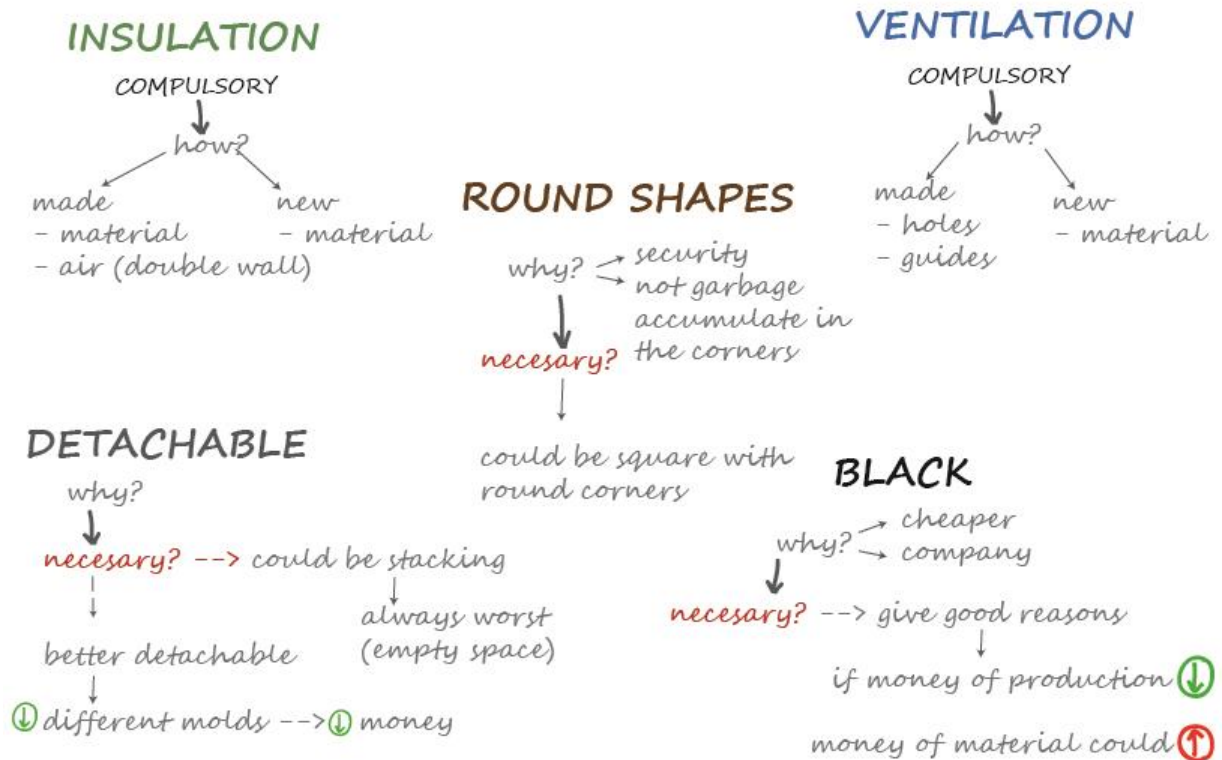 INSULATION
COMPULSORY
how?
made
- material
- air (double wall)
new
- material
VENTILATION
COMPULSORY
how?
made
- holes
- guides
new
- material
ROUND SHAPES
why?
security
not garbage
accumulate in
the corners
necesary?
could be square with
round corners
DETACHABLE
why?
necesary? --> could be stacking
always worst
(empty space)
better detachable
different molds --> money
BLACK
why?
cheaper
company
necesary? --> give good reasons
if money of production
money of material could